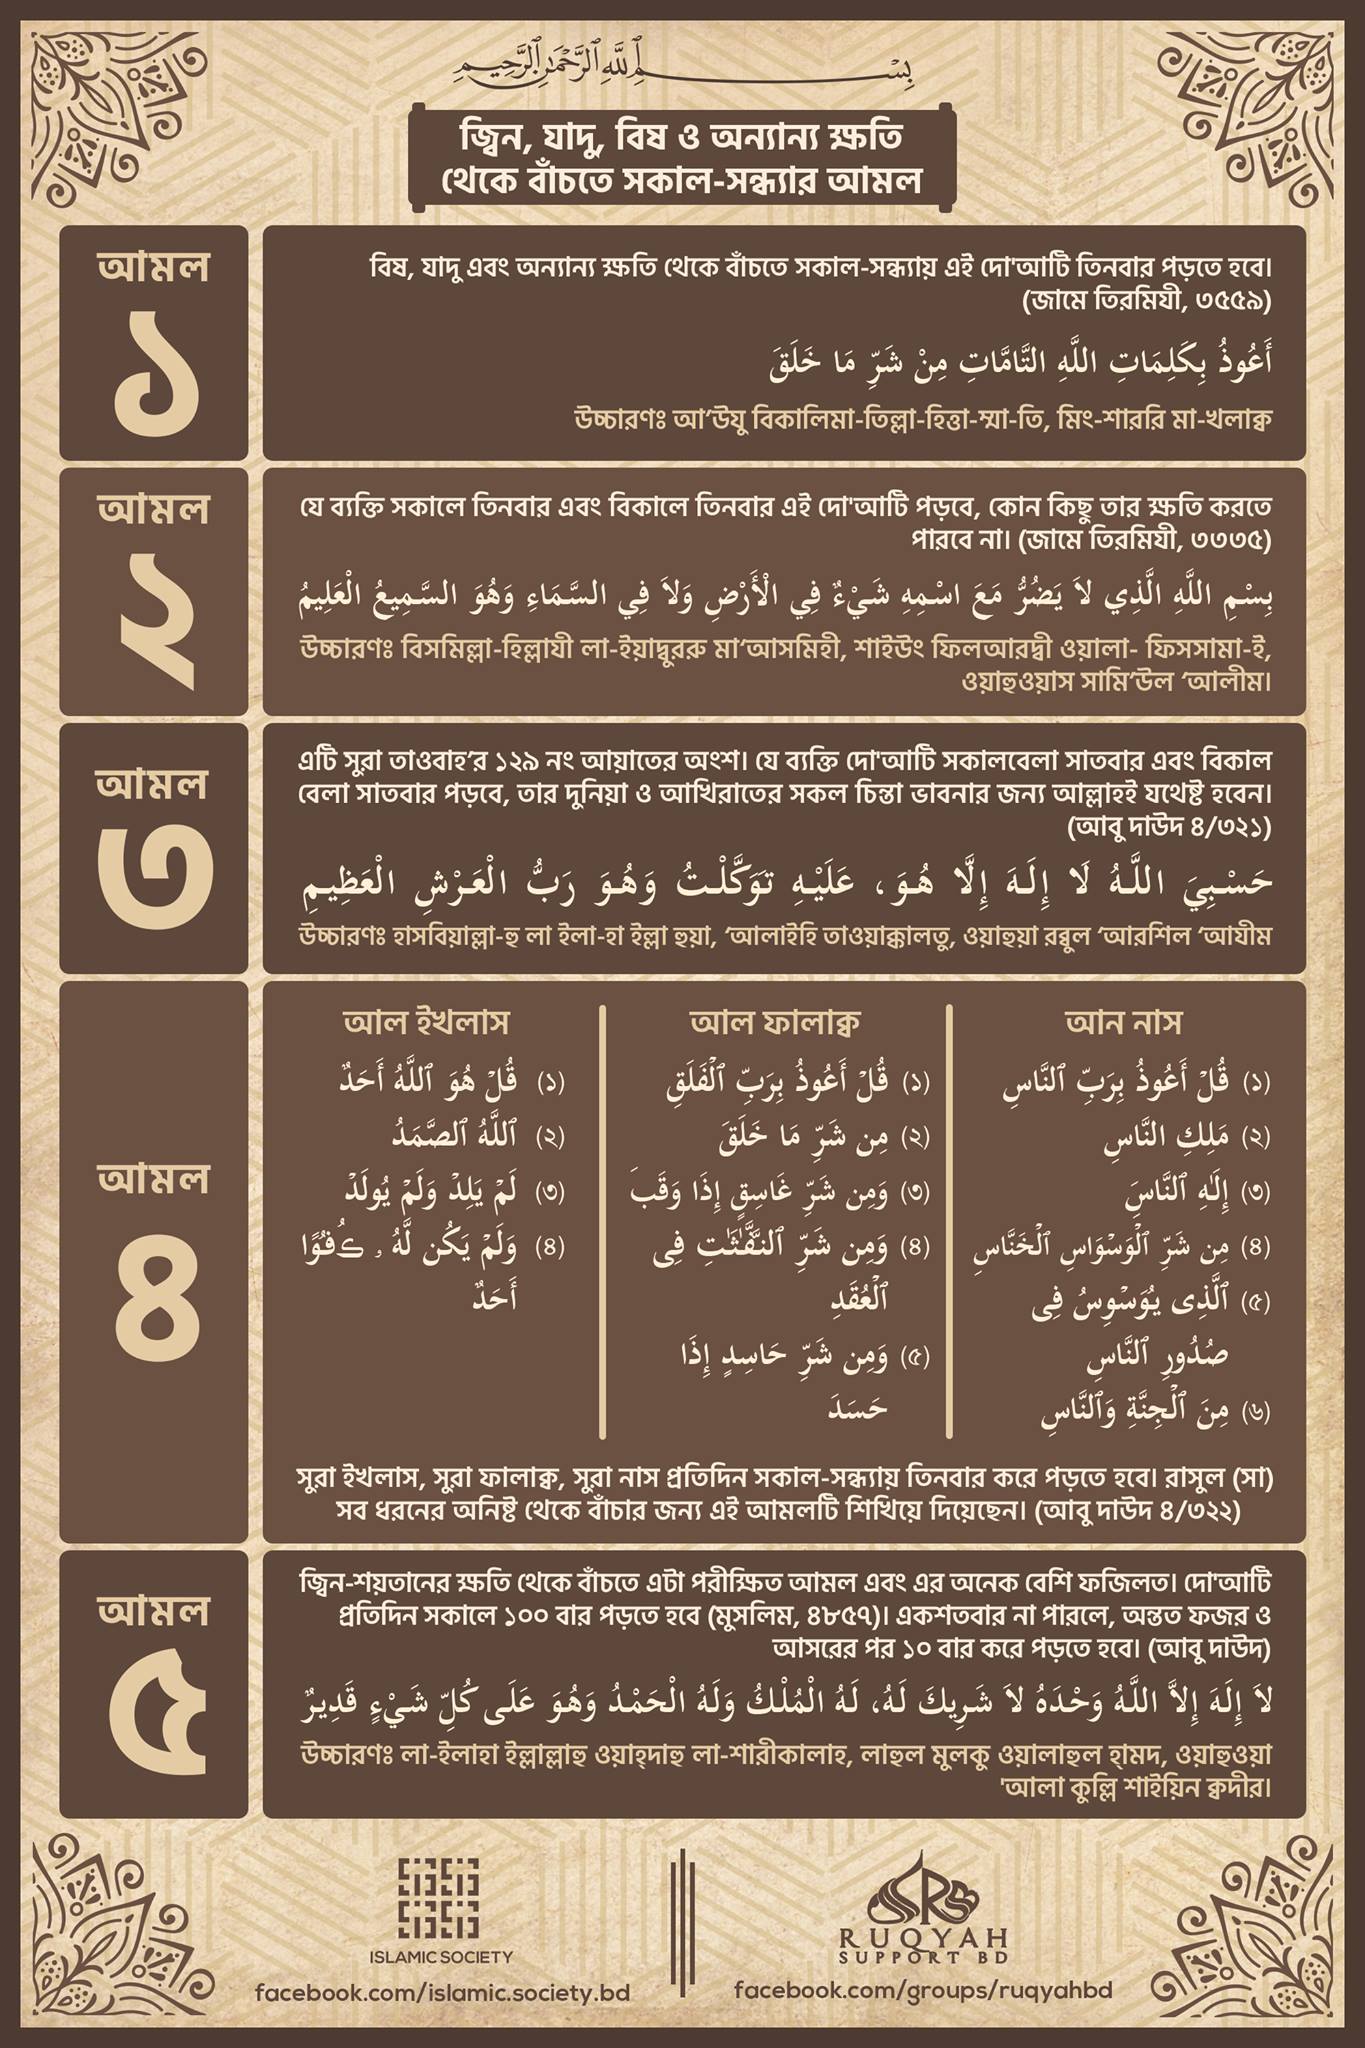 بِسْمِ ٱللَّهِ ٱلرَّحْمَٰنِ ٱلرَّحِيمِ
জ্বিন, যাদু, বিষ ও অন্যান্য ক্ষতি
থেকে বাঁচতে সকাল-সন্ধ্যার আমল
আমল
১
বিষ, যাদু এবং অন্যান্য ক্ষতি থেকে বাঁচতে সকাল-সন্ধ্যায় এই দো'আটি তিনবার পড়তে হবে।
(জামে তিরমিযী, ৩৫৫৯)
أَعُوذُ بِكَلِمَاتِ اللَّهِ التَّامَّاتِ مِنْ شَرِّ مَا خَلَقَ
উচ্চারণঃ আ’উযু বিকালিমা-তিল্লা-হিত্তা-ম্মা-তি, মিং-শাররি মা-খলাক্ব
আমল
২
যে ব্যক্তি সকালে তিনবার এবং বিকালে তিনবার এই দো'আটি পড়বে, কোন কিছু তার ক্ষতি করতে
পারবে না। (জামে তিরমিযী, ৩৩৩৫)
بِسْمِ اللَّهِ الَّذِي لاَ يَضُرُّ مَعَ اسْمِهِ شَيْءٌ فِي الْأَرْضِ وَلاَ فِي السَّمَاءِ وَهُوَ السَّمِيعُ الْعَلِيمُ
উচ্চারণঃ বিসমিল্লা-হিল্লাযী লা-ইয়াদ্বুররু মা’আসমিহী, শাইউং ফিলআরদ্বী ওয়ালা- ফিসসামা-ই,
ওয়াহুওয়াস সামি’উল ‘আলীম।
আমল
৩
এটি সুরা তাওবাহ’র ১২৯ নং আয়াতের অংশ। যে ব্যক্তি দো'আটি সকালবেলা সাতবার এবং বিকাল
বেলা সাতবার পড়বে, তার দুনিয়া ও আখিরাতের সকল চিন্তা ভাবনার জন্য আল্লাহই যথেষ্ট হবেন।
(আবু দাউদ ৪/৩২১)
حَسْبِيَ اللَّهُ لَا إِلَهَ إِلَّا هُوَ، عَلَيْهِ تَوَكَّلْتُ وَهُوَ رَبُّ الْعَرْشِ الْعَظِيمِ
উচ্চারণঃ হাসবিয়াল্লা-হু লা ইলা-হা ইল্লা হুয়া, ‘আলাইহি তাওয়াক্কালতু, ওয়াহুয়া রব্বুল ‘আরশিল ‘আযীম
আমল
৪
আন নাস
(১) قُلْ أَعُوذُ بِرَبِّ ٱلنَّاسِ
(২) مَلِكِ النَّاسِ
(৩) إِلَٰهِ ٱلنَّاسِ
(৪) مِن شَرِّ ٱلْوَسْوَاسِ ٱلْخَنَّاسِ
(৫) ٱلَّذِى يُوَسْوِسُ فِى
صُدُورِ ٱلنَّاسِ
(৬) مِنَ ٱلْجِنَّةِ وَٱلنَّاسِ
আল ফালাক্ব
(১) قُلْ أَعُوذُ بِرَبِّ ٱلْفَلَقِ
(২) مِن شَرِّ مَا خَلَقَ
(৩) وَمِن شَرِّ غَاسِقٍ إِذَا وَقَبَ
(৪) وَمِن شَرِّ ٱلنَّفَّٰثَٰتِ فِى
ٱلْعُقَدِ
(৫) وَمِن شَرِّ حَاسِدٍ إِذَا
حَسَدَ
আল ইখলাস
(১) قُلْ هُوَ ٱللَّهُ أَحَدٌ
(২) ٱللَّهُ ٱلصَّمَدُ
(৩) لَمْ يَلِدْ وَلَمْ يُولَدْ
(৪) وَلَمْ يَكُن لَّهُۥ كُفُوًا
أَحَدٌ
সুরা ইখলাস, সুরা ফালাক্ব, সুরা নাস প্রতিদিন সকাল-সন্ধ্যায় তিনবার করে পড়তে হবে। রাসুল (সা)
সব ধরনের অনিষ্ট থেকে বাঁচার জন্য এই আমলটি শিখিয়ে দিয়েছেন। (আবু দাউদ ৪/৩২২)
আমল
৫
জ্বিন-শয়তানের ক্ষতি থেকে বাঁচতে এটা পরীক্ষিত আমল এবং এর অনেক বেশি ফজিলত। দো'আটি
প্রতিদিন সকালে ১০০ বার পড়তে হবে (মুসলিম, ৪৮৫৭)। একশতবার না পারলে, অন্তত ফজর ও
আসরের পর ১০ বার করে পড়তে হবে। (আবু দাউদ)
لاَ إِلَهَ إِلاَّ اللَّهُ وَحْدَهُ لاَ شَرِيكَ لَهُ، لَهُ الْمُلْكُ وَلَهُ الْحَمْدُ وَهُوَ عَلَى كُلِّ شَيْءٍ قَدِيرٌ
উচ্চারণঃ লা-ইলাহা ইল্লাল্লাহু ওয়াহ্‌দাহু লা-শারীকালাহ, লাহুল মুলকু ওয়ালাহুল হা্মদ, ওয়াহুওয়া
'আলা কুল্লি শাইয়িন ক্বদীর।
ISLAMIC SOCIETY
facebook.com/islamic.society.bd
RUQYAH
SUPPORT BD
facebook.com/groups/ruqyahbd